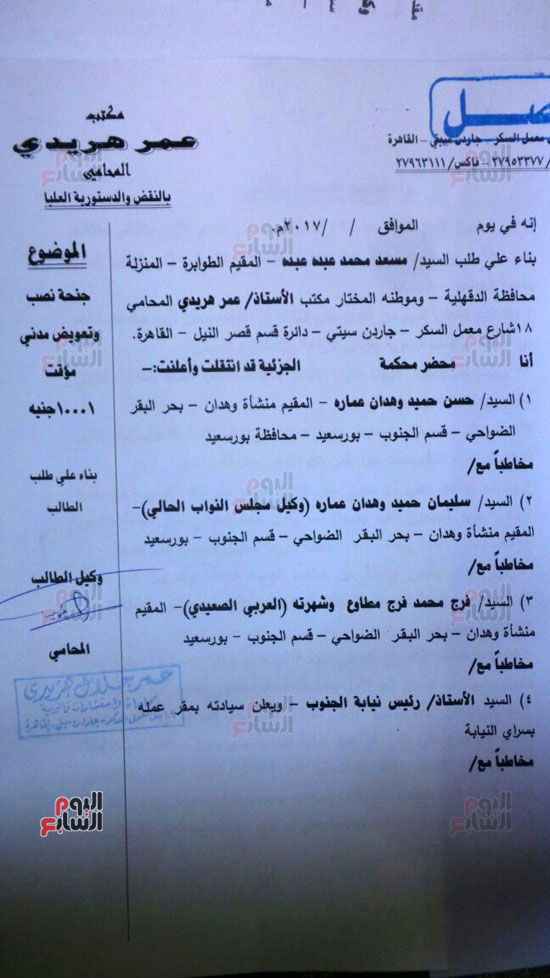 مكتب
عمر هريدي
المحامي
بالنقض والدستورية العليا
معمل السكر - جاردن سيتي - القاهرة
٢٧٩٥٣٣٧٧ - فاكس/ ٢٧٩٦٣١١١
إنه في يوم الموافق / /٢٠١٧م
بناء علي طلب السيد/ مسعد محمد عبده عبده - المقيم الطوابرة - المنزلة
محافظة الدقهلية - وموطنه المختار مكتب الأستاذ/ عمر هريدي المحامي
١٨شارع معمل السكر - جاردن سيتي - دائرة قسم قصر النيل - القاهرة.
أنا محضر محكمة الجزئية قد انتقلت وأعلنت:-
١) السيد/ حسن حميد وهدان عماره - المقيم منشأة وهدان - بحر البقر
الضواحي - قسم الجنوب - بورسعيد - محافظة بورسعيد
مخاطباً مع/
٢) السيد/ سليمان حميد وهدان عماره (وكيل مجلس النواب الحالي)-
المقيم منشأة وهدان - بحر البقر الضواحي - قسم الجنوب - بورسعيد
مخاطباً مع/
٣) السيد/ فرج محمد فرج مطاوع وشهرته (العربي الصعيدي)- المقيم
منشأة وهدان - بحر البقر الضواحي - قسم الجنوب - بورسعيد
مخاطباً مع/
٤) السيد الأستاذ/ رئيس نيابة الجنوب - ويعلن سيادته بمقر عمله
بسراي النيابة
مخاطباً مع/
الموضوع
جنحة نصب
وتعويض مدني
مؤقت
١٠٠٠١جنيه
بناء علي طلب
الطالب
وكيل الطالب
المحامي
عمر جلال هريدي
اليوم السابع